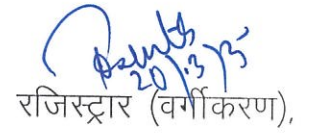 20/3/15
रजिस्ट्रार (वर्गीकरण),